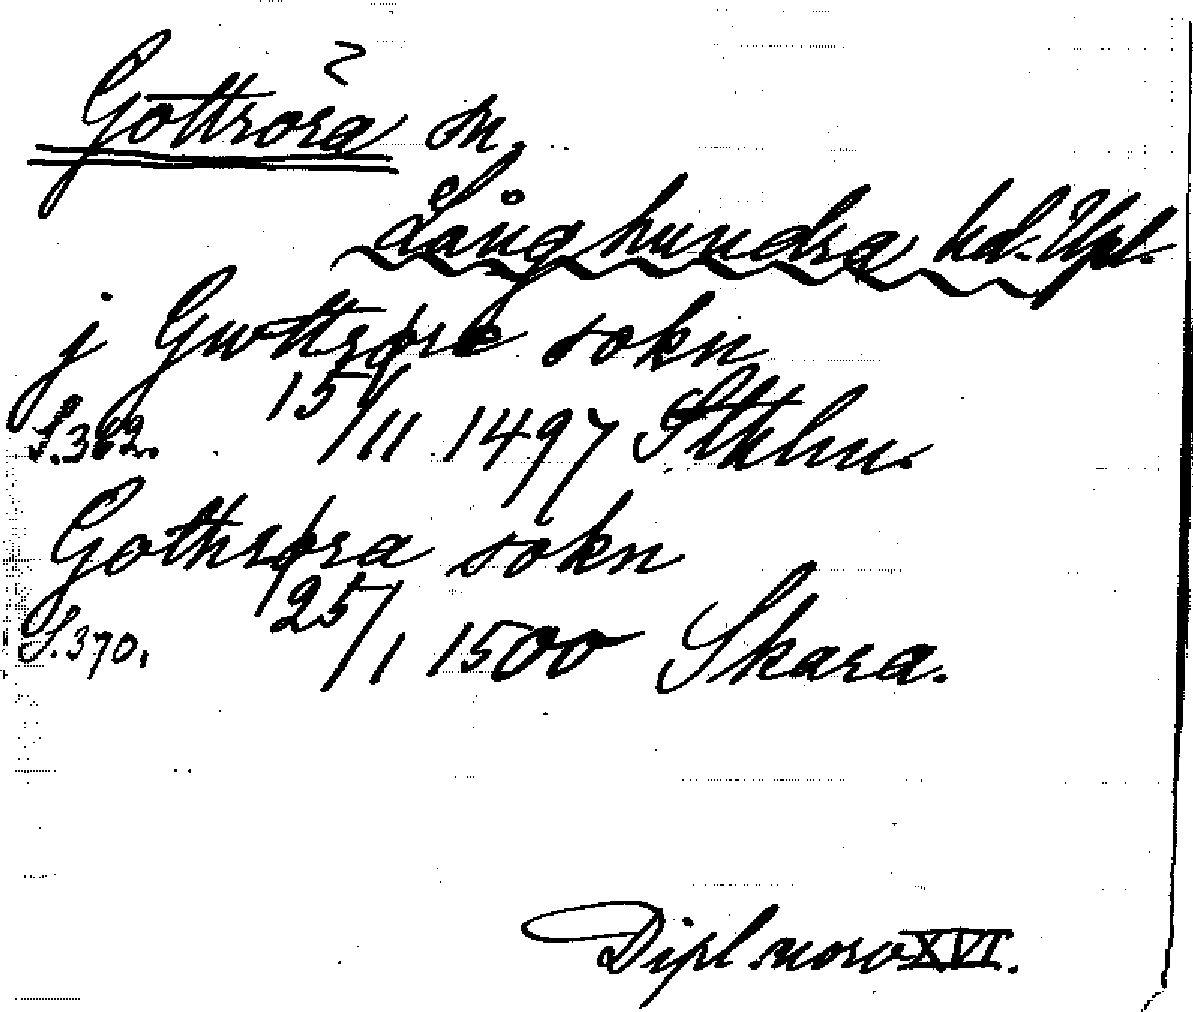 Gottröra sn,
Långhundra hd. Upl.
j Gwttrøre sokn
S.362. 15/11 1497 Sthlm.
Gothrøra sokn
S.370. 25/1 1500 Skara.
Dipl. norv XVI.